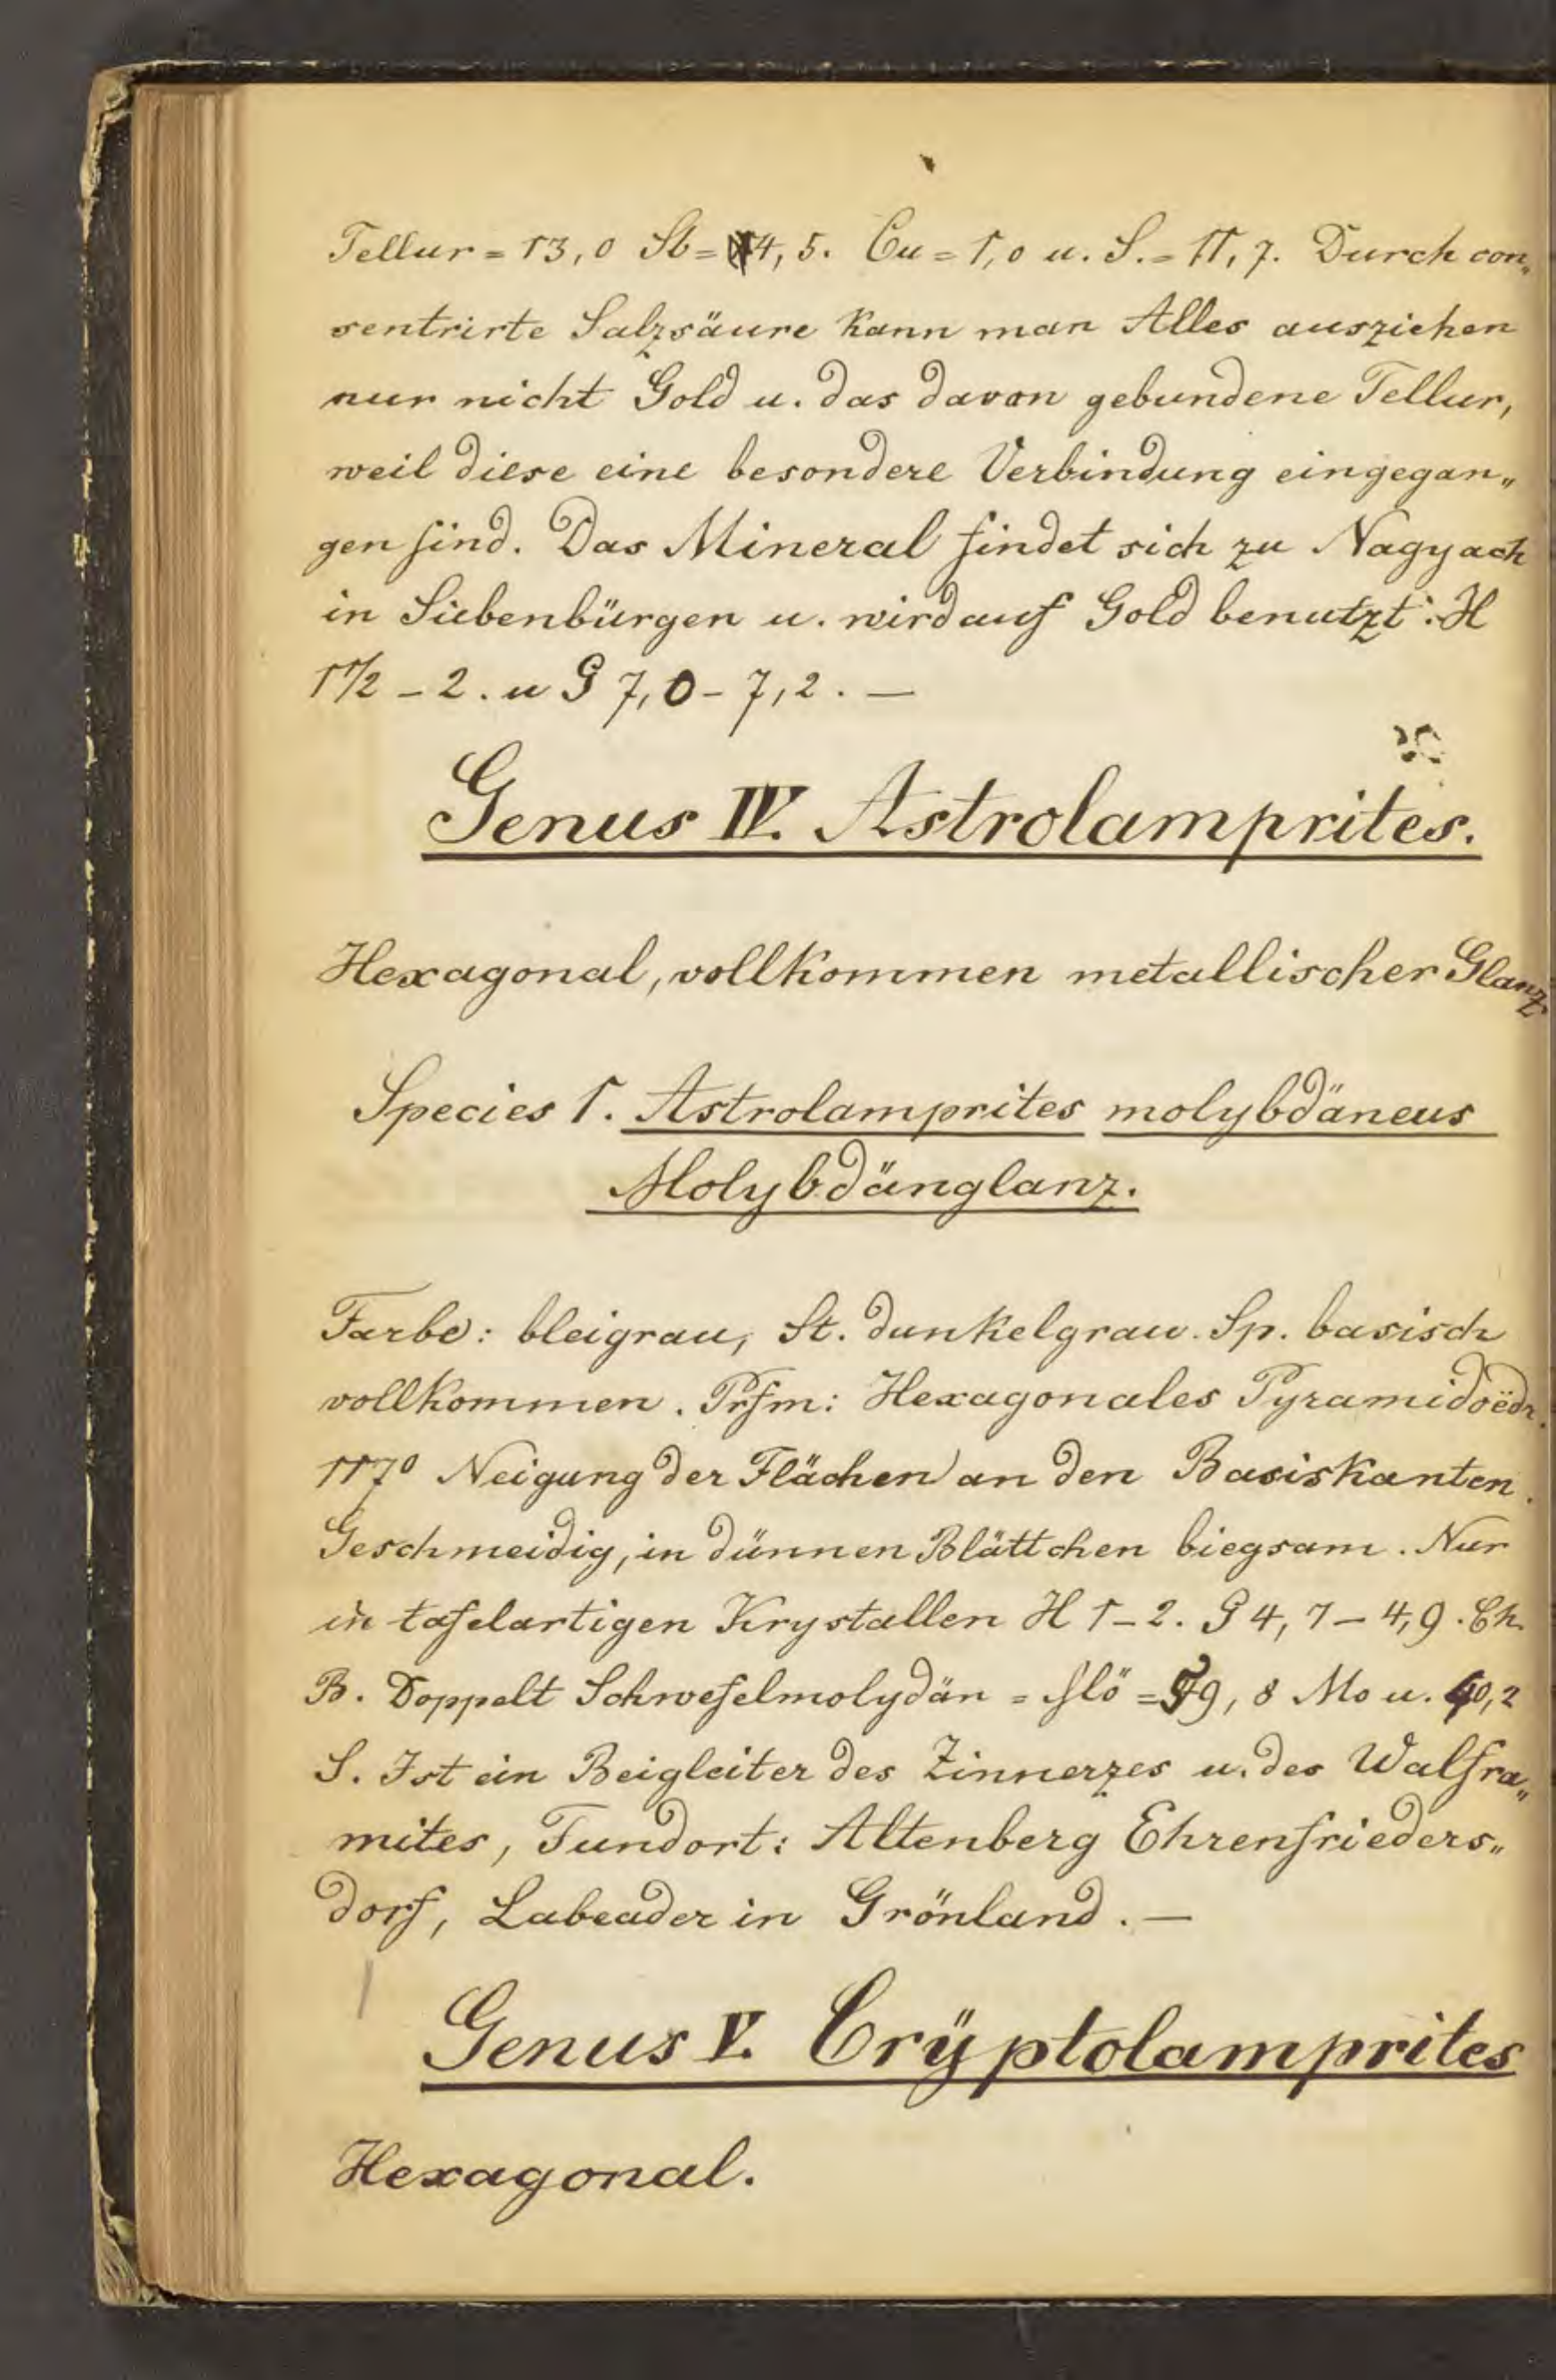 Tellur = 13,0 Sb = 4,5. Cu = 1,0 u. S. = 11,7. Durch con„
sentrirte Salzsäure kann man Alles ausziehen
nur nicht Gold u. das davon gebundene Tellur,
weil diese eine besondere Verbindung eingegan„
gen sind. Das Mineral findet sich zu Nagyach
in Siebenbürgen u. wird auf Gold benutzt. H
1 1/2 – 2. u G 7,0 – 7,2. —
Genus IV. Astrolamprites.
Hexagonal, vollkommen metallischer Glanz
Species 1. Astrolamprites molybdäneus
Molybdänglanz.
Farbe: bleigrau, St. dunkelgrau. Sp. basisch
vollkommen. Prfm: Hexagonales Pyramidoëdr.
117° Neigung der Flächen an den Basiskanten.
Geschmeidig, in dünnen Blättchen biegsam. Nur
in tafelartigen Krystallen H 1–2. G 4,7 – 4,9. Ch.
B. Doppelt Schwefelmolydän = = 59,8 Mo u. 40,2
S. Ist ein Beigleiter des Zinnerzes u. des Walfra„
mites, Fundort: Altenberg Ehrenfrieders„
dorf, Labeader in Grönland. —
Genus V. Crÿptolamprites
Hexagonal.